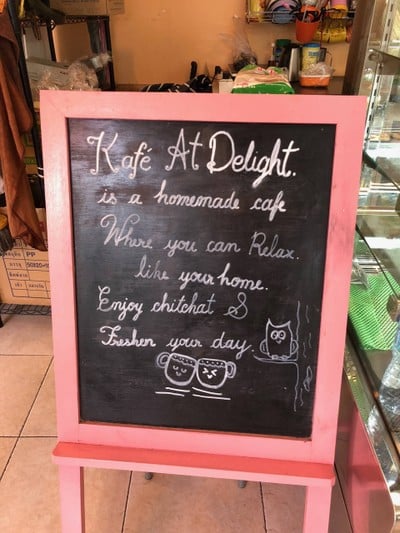 Kafé At Delight.
is a homemade cafe
Where you can Relax.
like your home.
Enjoy chitchat &
Freshen your day
PP